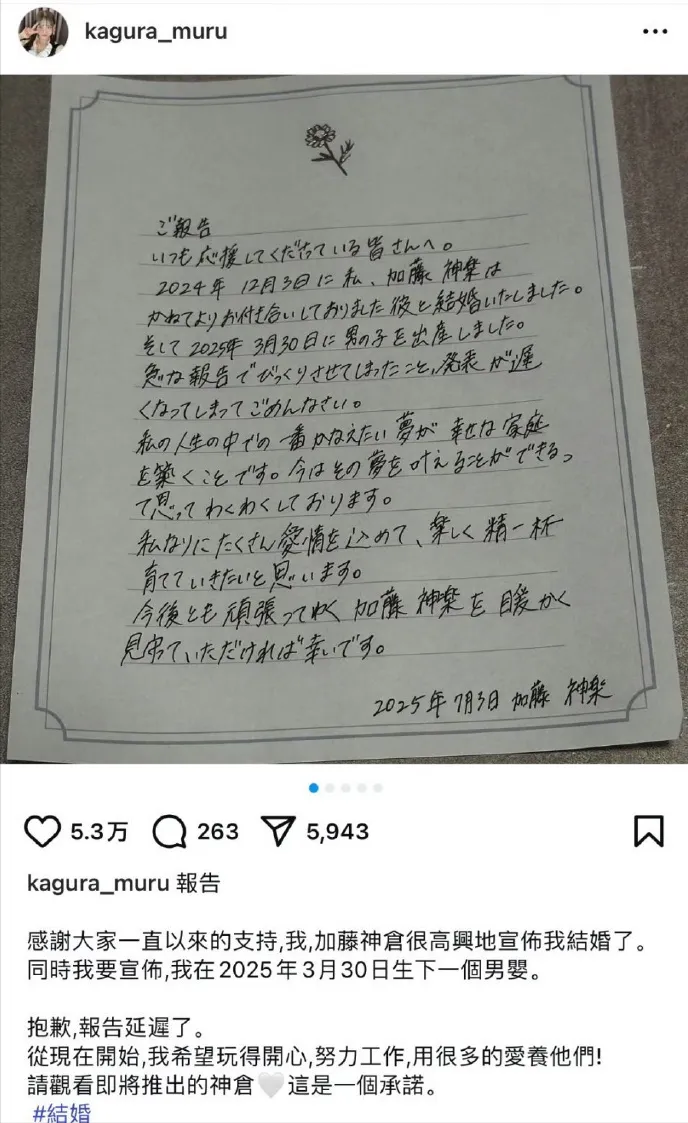 kagura_muru
ご報告
いつも応援してくださっている皆さんへ。
2024年 12月3日に私、加藤 神楽は
かねてよりお付き合いしておりました彼と結婚いたしました。
そして 2025年 3月30日に男の子を出産しました。
急な報告でびっくりさせてしまったこと、発表が遅
くなってしまってごめんなさい。
私の人生の中での一番かなえたい夢が 幸せな家庭
を築くことです。今はその夢を叶えることができるっ
て思ってわくわくしております。
私なりにたくさん愛情を込めて、楽しく 精一杯
育てていきたいと思います。
今後とも頑張ってゆく 加藤 神楽を 暖かく
見守っていただければ幸いです。
2025年 7月3日 加藤 神楽
5.3万 263 5,943
kagura_muru 報告
感謝大家一直以來的支持,我,加藤神倉很高興地宣佈我結婚了。
同時我要宣佈,我在2025年3月30日生下一個男嬰。
抱歉,報告延遲了。
從現在開始,我希望玩得開心,努力工作,用很多的愛養他們!
請觀看即將推出的神倉🤍這是一個承諾。
#結婚